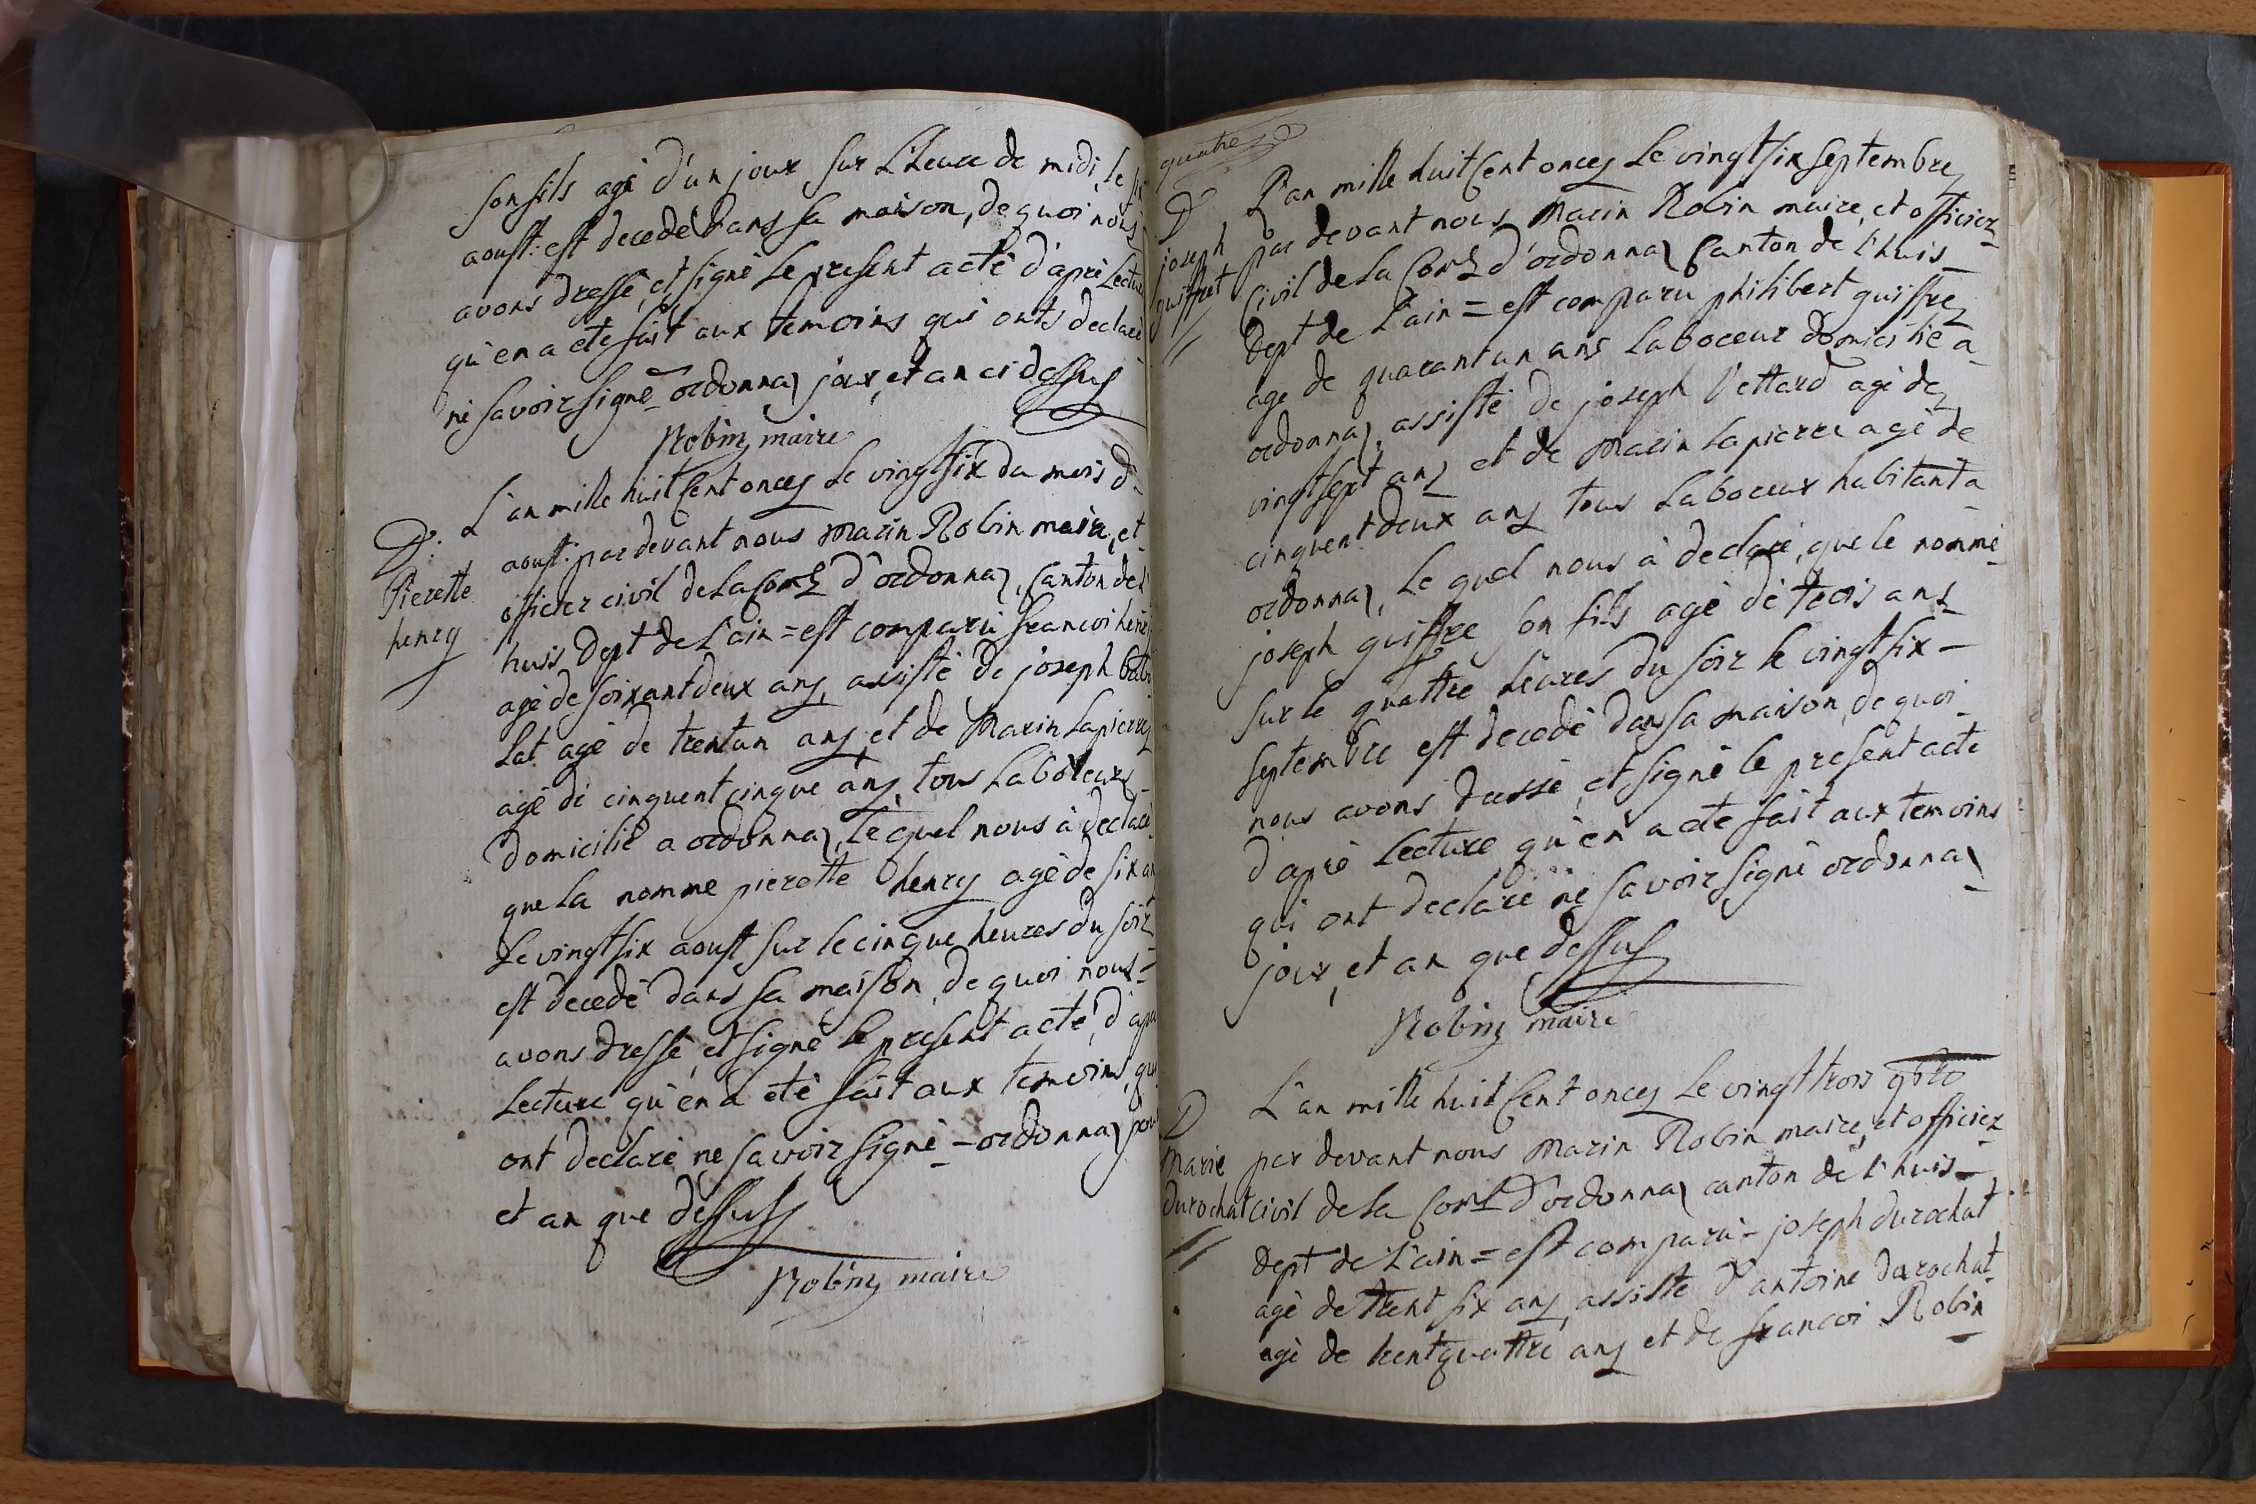 son fils agé d'un jour sur L'heure de midi, le
aoust: est decedé dans sa maison, de quoi nous
avons dressé, et signé Le present acté d'aprè Lectur
qu'en a eté fait aux temoins qui onts declaré
nè savoir signé ordonnaz jour, et an ci dessus
Robin, maire
L'an mille huit Cent onces Le vingt six du mois d'
D:
Pierette
henry
aoust: par devant nous marin Robin maire, et
officier civil de La Com d'ordonnaz, Canton de L'
huis Dept de L'ain = est comparu francoi henri
agé de soixant deux ans, assisté de joseph
Lat agé de trentun ans, et de Marin Lapierre
agé dé cinquent cinque ans, tous Laboveurs
Domicilié a ordonnaz, Le quel nous à declaré
que La nomme pierette henry agé de six an
Le vingt six aoust sur le cinque heures du soir
est decedé dans sa maison, de quoi nous =
avons dressé, et signé Le present acté, d'apre
Lecture qu'en à eté fait aux temoins, qui
ont declaré ne savoir signé - ordonnaz jour
et an que dessus
Robin, maire
quatre
D
joseph
guiffret
L'an mille huit Cent onces Le vingt six septembre
par devant nous Marin Robin maire, et officier
Civil de La Com d'ordonnaz Canton de L'huis
Dept de L'ain = est comparu philibert guiffre
age de quarantun ans Laboceur domicilié a
ordonnaz, assisté de joseph Vettard agé de
vingt sept ans et de Marin Lapierre agé de
cinquent deux ans tous Laboceux habitant a
ordonnaz, Le quel nous à declaré, que le nommé
joseph guiffre son fils agé dé trois ans
sur le quattre heures du soir le vingt six -
septembre est decedé dans sa maison, de quoi
nous avons dressé, et signé le present acte
d'aprè Lecture qu'en a eté fait aux temoins
qui ont declaré ne savoir signé ordonnaz
jour, et an que dessus
Robin, maire
D
Marie
durochat
L'an mille huit Cent onces Le vingt trois 9bre
par devant nous Marin Robin maire, et officier
civil de La Com d'ordonnaz canton de L'huis
Dept de L'ain = est comparu - joseph durochat
agé de trent six ans, assisté d'antoine durochat
agé de trentquattre ans et de francoi Robin